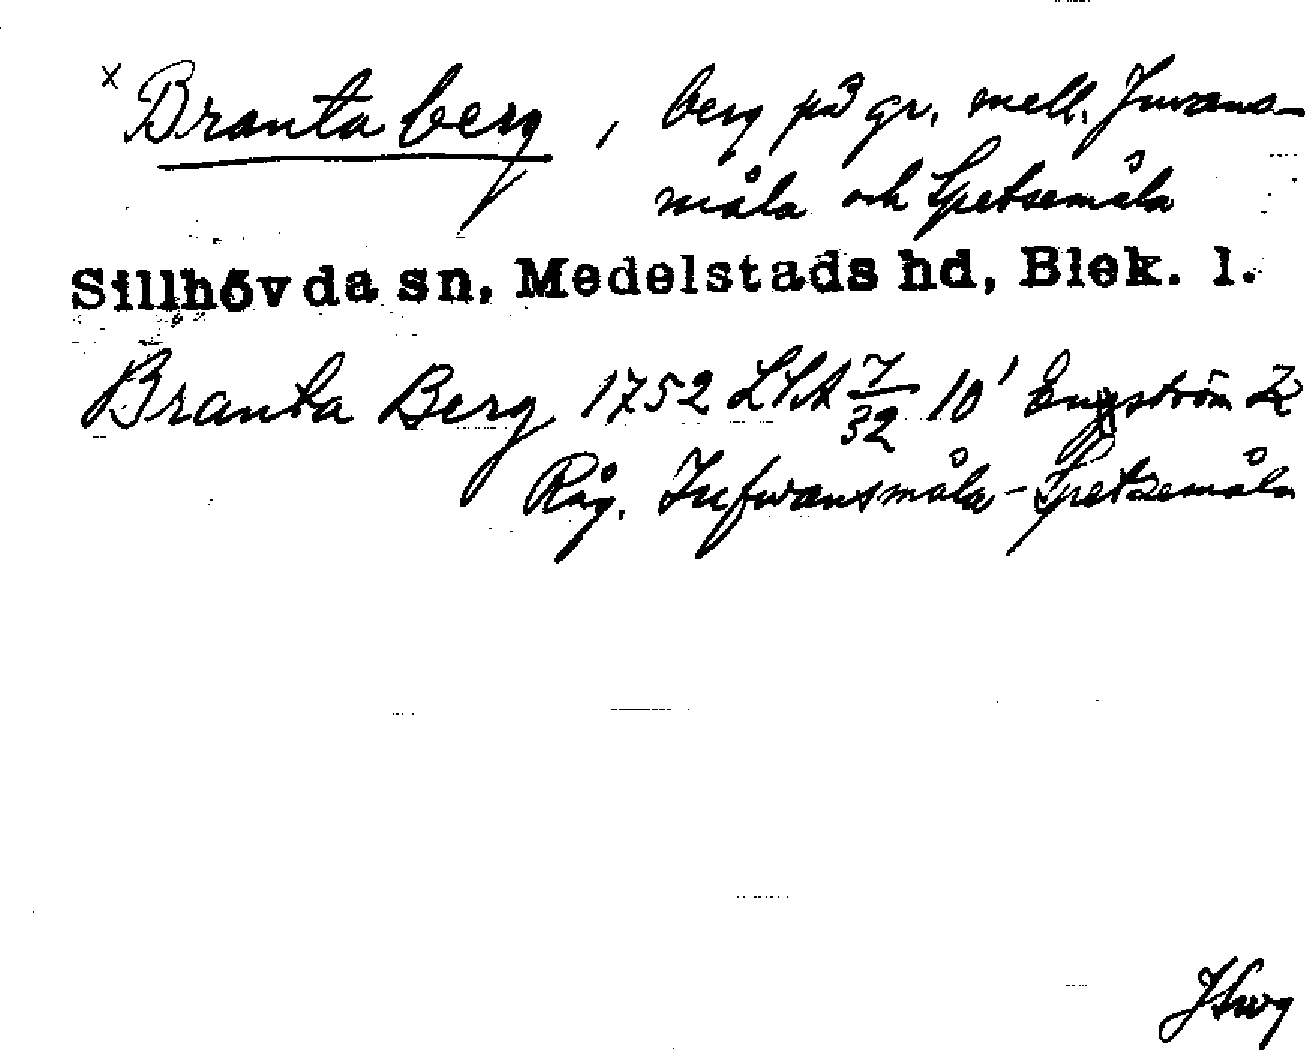 x Branta berg, berg på gr. mell. Juvans-
måla och Spetsemåla
Sillhövda sn, Medelstads hd, Blek. l.
Branta Berg 1752 LSA 7/32 10' Engström
Råg. Jufwansmåla - Spetsemåla